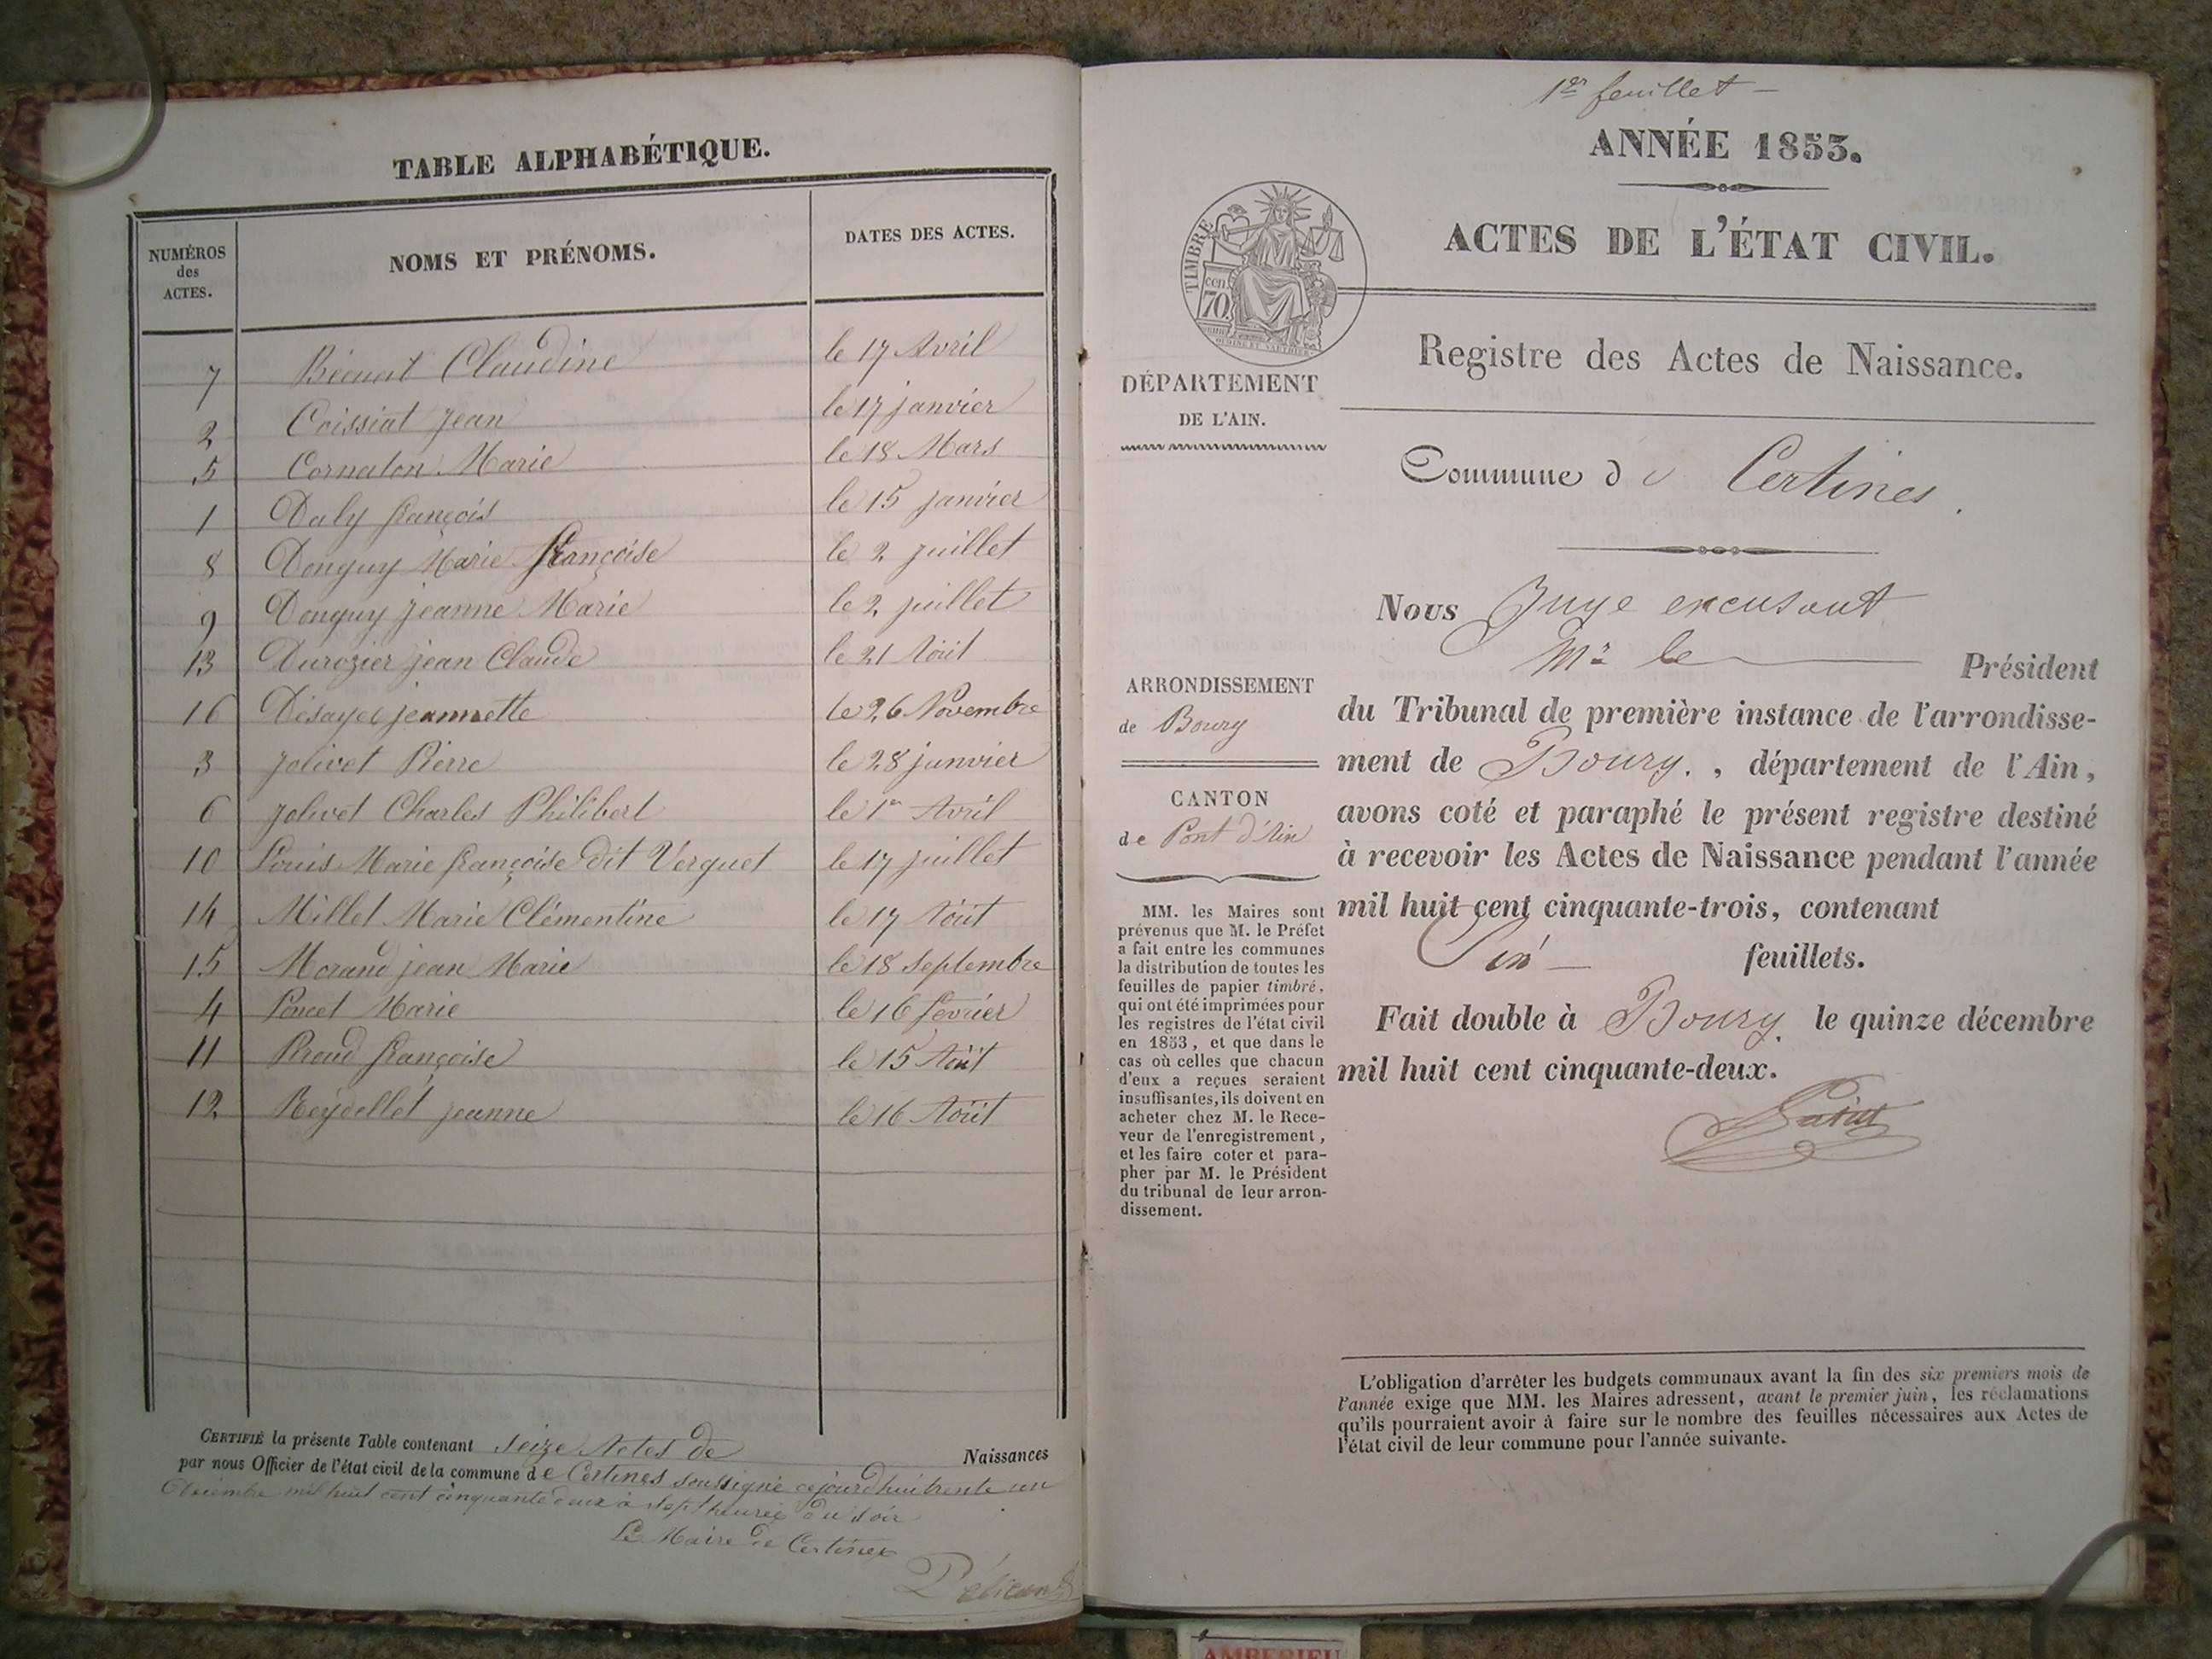 TABLE ALPHABÉTIQUE.
NUMÉROS des ACTES. NOMS ET PRÉNOMS. DATES DES ACTES.
7 Claudine le 17 Avril
2 Coissiat Jean le 17 janvier
5 Cornaton Marie le 18 Mars
1 Daly françois le 15 janvier
8 Donguy Marie françoise le 2 juillet
9 Donguy jeanne Marie le 2 juillet
13 Durozier jean Claude le 21 Aóut
16 Désayes jeannette le 26 Novembre
3 jolivet Pierre le 28 janvier
6 jolivet Charles Philibert le 1er Avril
10 Louis Marie françoise dit Verguet le 17 juillet
14 Millet Marie Clémentine le 17 Aóut
15 Morand jean Marie le 18 Septembre
4 Poncet Marie le 16 fevrier
11 Proud françoise le 15 Aóut
12 Reydellet jeanne le 16 Aóut
CERTIFIÉ la présente Table contenant seize Actes de Naissances
par nous Officier de l'état civil de la commune de Certines soussigné cejourd'hui trente un
Décembre mil huit cent cinquante deux à sept heures du soir
Le Maire de Certines
1er feuillet
ANNÉE 1853.
ACTES DE L'ÉTAT CIVIL.
TIMBRE
70 cen.
Registre des Actes de Naissance.
DÉPARTEMENT
DE L'AIN.
Commune de Certines.
ARRONDISSEMENT
de Bourg
CANTON
de Pont d'Ain
MM. les Maires sont
prévenus que M. le Préfet
a fait entre les communes
la distribution de toutes les
feuilles de papier timbré,
qui ont été imprimées pour
les registres de l'état civil
en 1853, et que dans le
cas où celles que chacun
d'eux a reçues seraient
insuffisantes, ils doivent en
acheter chez M. le Rece-
veur de l'enregistrement,
et les faire coter et para-
pher par M. le Président
du tribunal de leur arron-
dissement.
Nous Juge excusant
Mr le Président
du Tribunal de première instance de l'arrondisse-
ment de Bourg., département de l'Ain,
avons coté et paraphé le présent registre destiné
à recevoir les Actes de Naissance pendant l'année
mil huit cent cinquante-trois, contenant
feuillets.
Fait double à Bourg, le quinze décembre
mil huit cent cinquante-deux.
L'obligation d'arrêter les budgets communaux avant la fin des six premiers mois de
l'année exige que MM. les Maires adressent, avant le premier juin, les réclamations
qu'ils pourraient avoir à faire sur le nombre des feuilles nécessaires aux Actes de
l'état civil de leur commune pour l'année suivante.
AMBERIEU